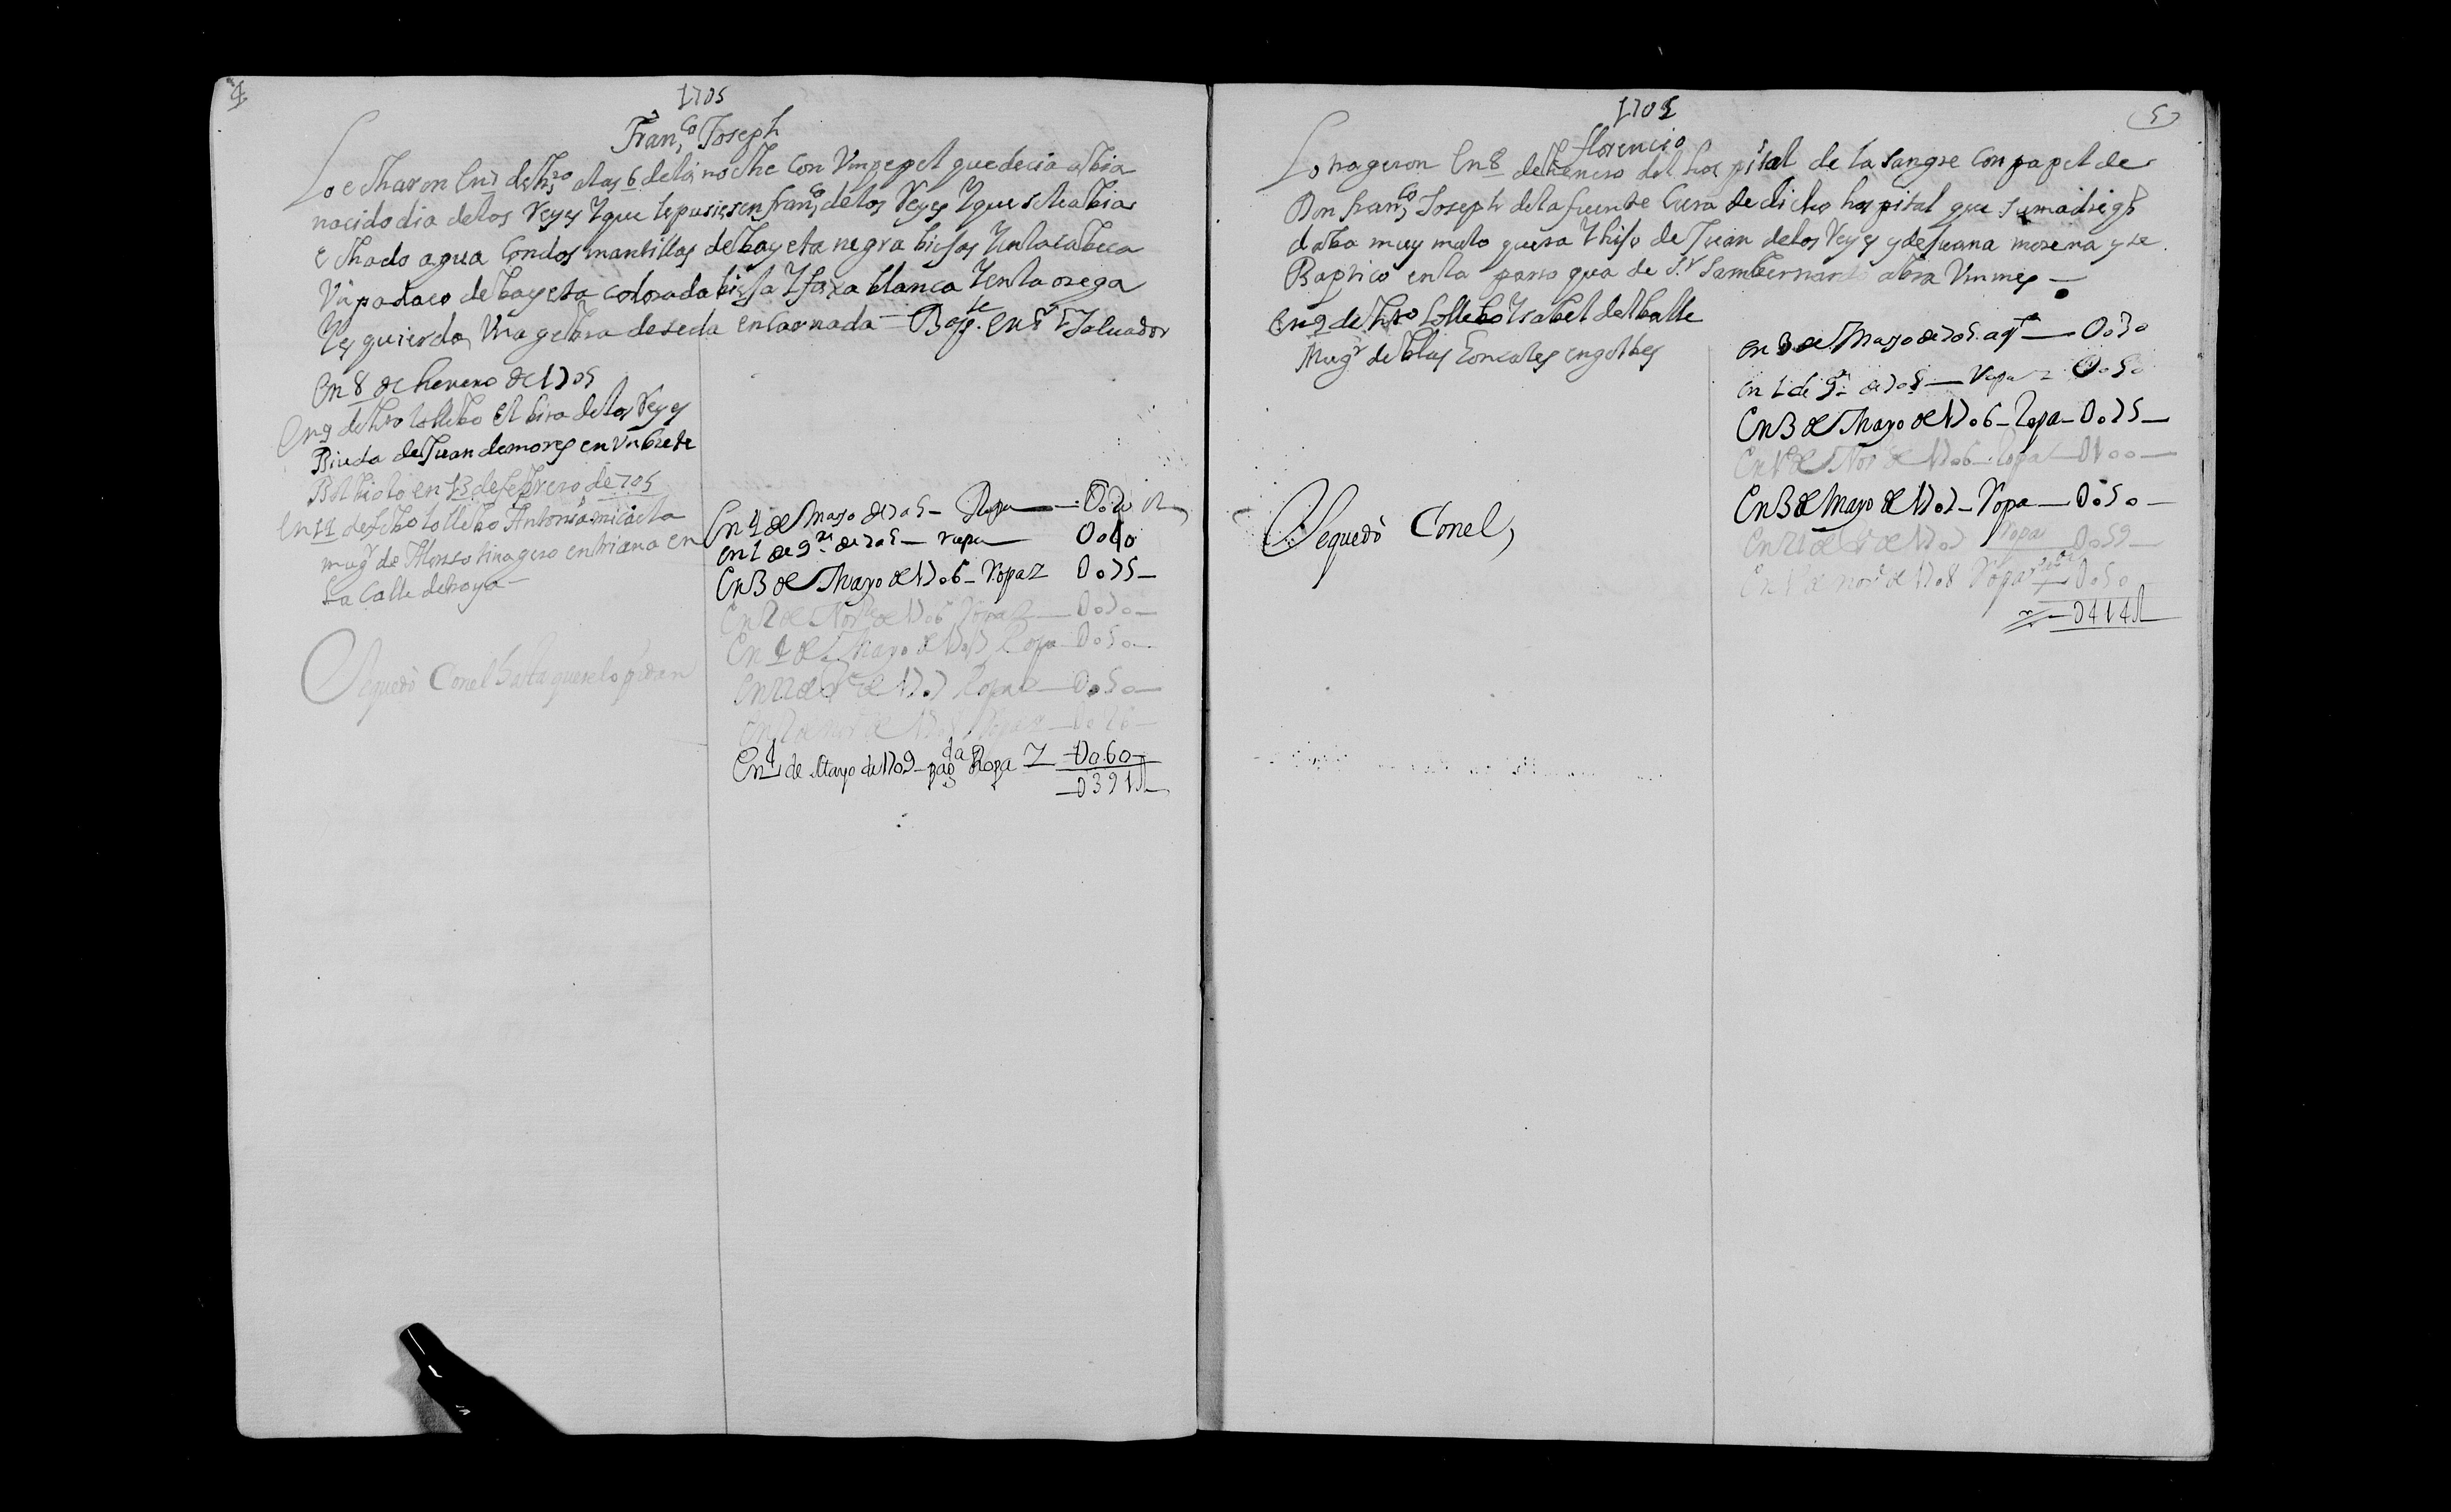 4
1705
Fran,co Joseph
Lo echaron en 7 de hen,ro a las 6 de la noche con Un papel que decia abia
nacido dia de los Reyes Y que le pusiesen fran,co de los Reyes Y que se le abia
echado agua Con dos mantillas de bayeta negra biejas Y en la cabeca
Un padaco de bayeta colorada bieja Y faxa blanca Y en la oreja
Ysquierda Una gebra de seda encarnada — Bap.te en S.r Saluador
En 8 de henero de 1705
en 9 de h.ro lo llebo elbira de los Reyes
Biuda de Juan de mores en Un brete
Bolbiolo en 13 de febrero de 705
en 14 de feb,o lo llebo Antonia
mug.r de Alonso tinagero en triana en
La Calle de
Se quedò Con el hasta que se lo pidan
En 4 de Mayo de 705 — Ropa —
en 1 de 9.re de 705 — ropa — 0040
En 3 de Mayo de 1706 — Ropa 2 0075 —
En 2 de Nov.re de 1706 Ropa 2 — 0070 —
En 1 de Mayo de 1707 Ropa — 0050 —
En 22 de de 1707 Ropa 2 — 0050 —
En 1 de Mayo de 1709 — pag.da Ropa 2 — 0060 —
— 0391
1705
5
florencio
Lo trageron en 8 de henero del hospital de la Sangre con papel de
Don fran,co Joseph de la fuente Cura de dicho hospital que su madre q
daba muy malo que era Y hijo de Juan de los Reyes y de Juana morena y se
Baptico en la parroquia de S.r San bernardo abra Un mes —
en 9 de h.ro lo llebo Ysabel del balle
Mug.r de blas Goncales en gelbes
Se quedò Con el,
en 3 de Mayo de 705 — 0030
en 1 de 9.re de 705 — Ropa 2 0050
En 3 de Mayo de 1706 — Ropa — 0075 —
En 1º de Nov.e de 1706 — Ropa 2 — 0100 —
En 3 de Mayo de 1707 — Ropa — 0050 —
En 21 de de 1707 Ropa — 0059 —
En 1º de nov.e de 1708 Ropa — 0050
— 0414